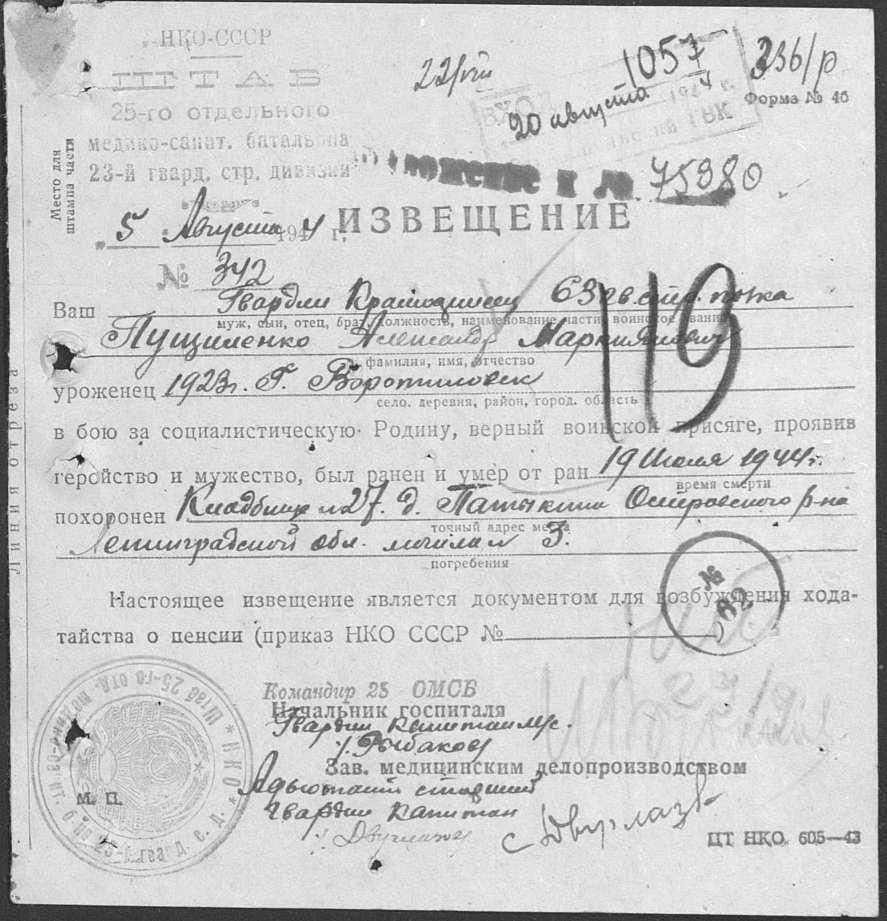 НКО-СССР
ШТАБ
25-го отдельного
медико-санит. батальона
23-й гвард. стр. дивизии
Место для
штампа части
22/VIII
1057
336/р
Форма № 45
ВХОД
20 августа
РВК
к № 75980
5 Августа 1944 г.
ИЗВЕЩЕНИЕ
№ 342
119
Ваш Гвардии Красноармеец 63 гв. стр. полка
муж, сын, отец, брат, должность, наименование части, воинское звание
Пущиленко Александр Маркиянович
фамилия, имя, отчество
уроженец 1923г. Г.
село, деревня, район, город, область
в бою за социалистическую Родину, верный воинской присяге, проявив
геройство и мужество, был ранен и умер от ран 19 Июля 1944г.
время смерти
похоронен Кладбище №27. д. Островского р-на
точный адрес места
Ленинградской обл. могила № 3.
погребения
Линия отреза
Настоящее извещение является документом для возбуждения хода-
тайства о пенсии (приказ НКО СССР №
№
Командир 25 ОМСБ
Начальник госпиталя
Гвардии Капитан м/с.
Рыбаков
Зав. медицинским делопроизводством
Адъютант старший
Гвардии Капитан
М. П.
НКО
Штаб 25-го отд.
23-й гвард. с. д.
ЦТ НКО. 605—43